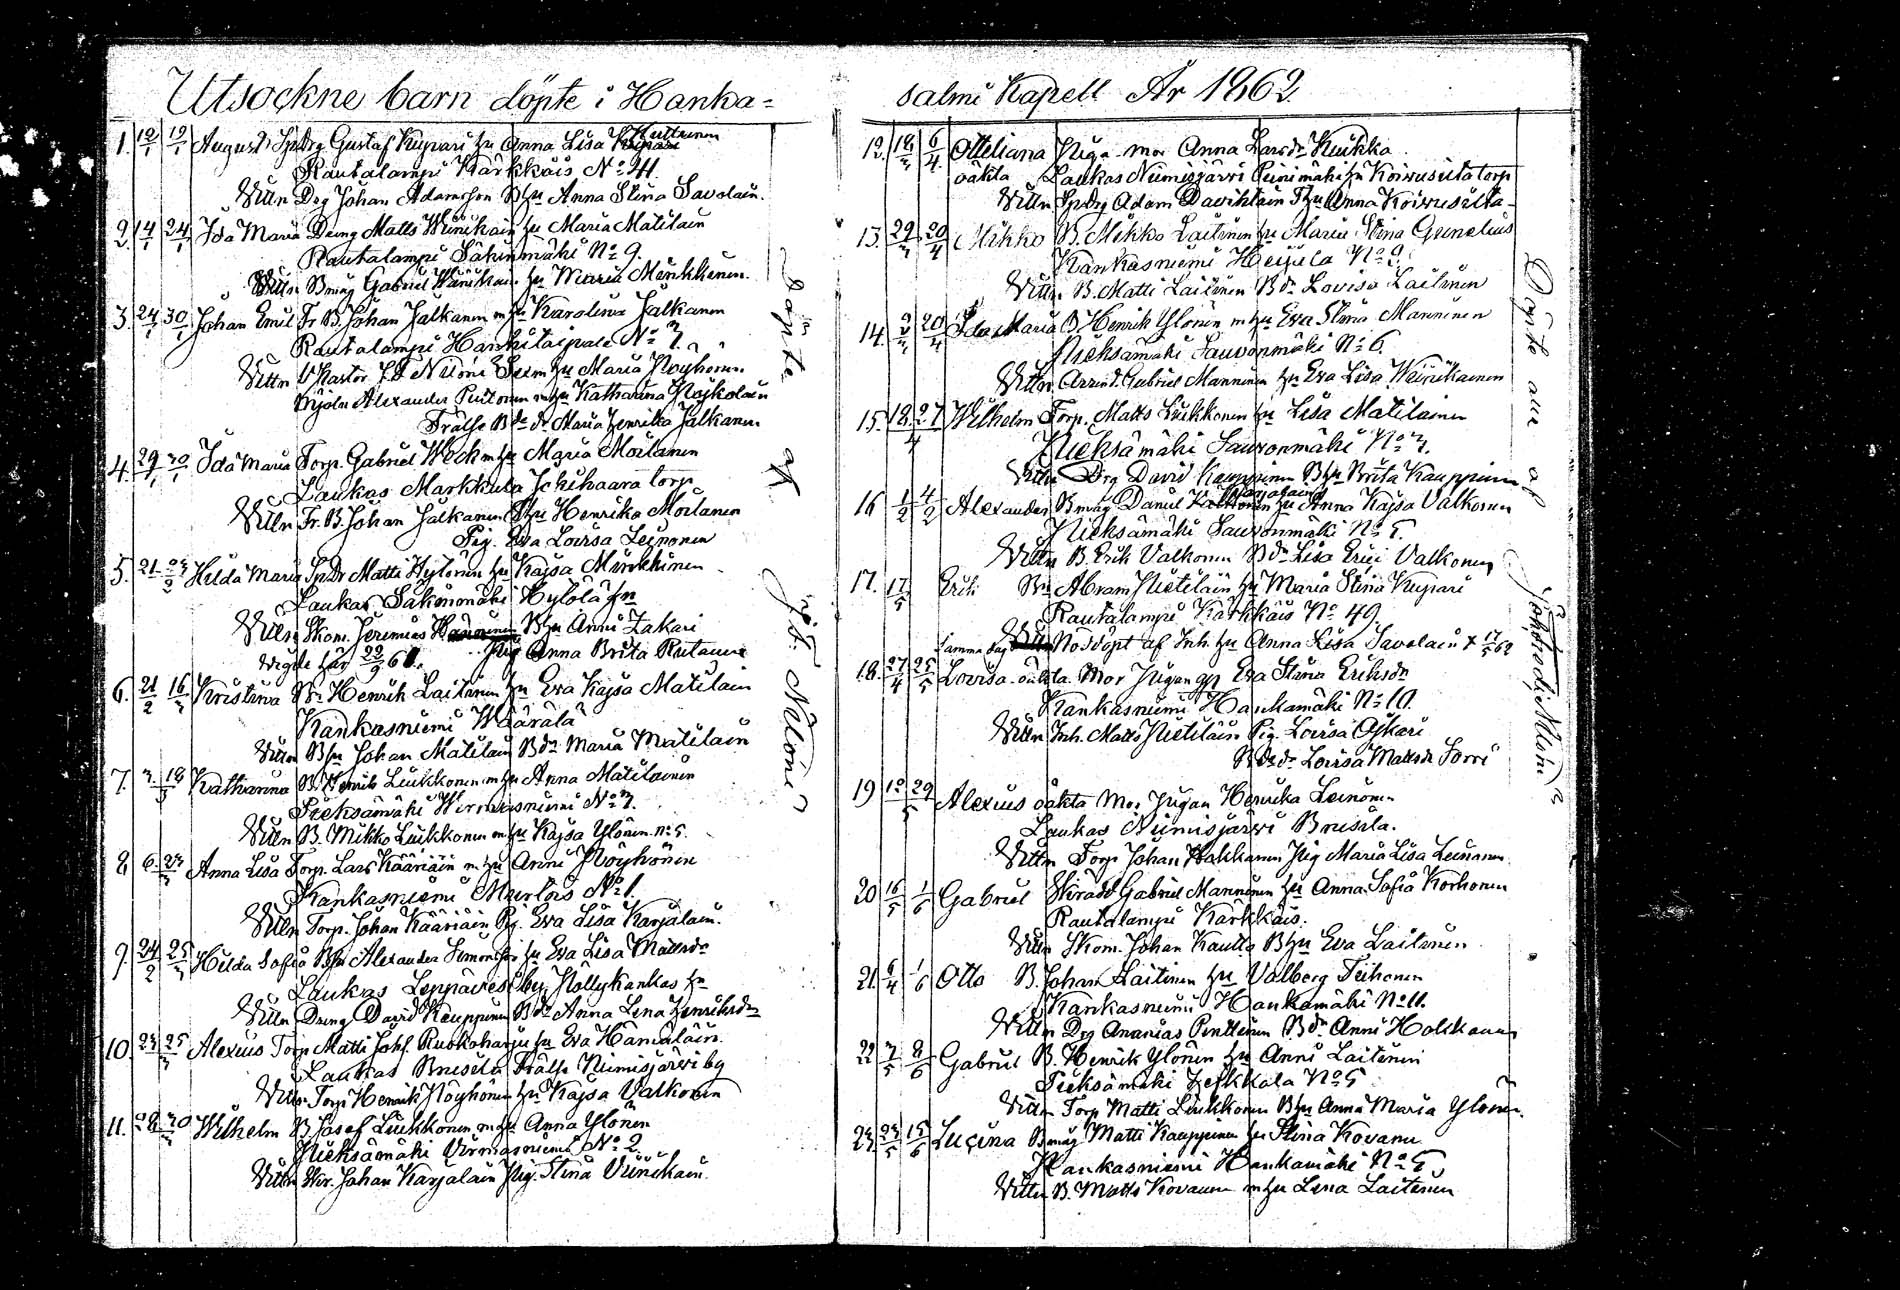 Utsockne barn döpte i Hanka=
1. 12/1 19/1 August SpDrg Gustaf Kupari hu Anna Lisa Kuttunen
Rautalampi Kärkkäis No 41.
Vittn Drg Johan Adamsson Bhu Anna Stina Savolain.
2. 14/1 24/1 Ida Maria Dreng Matts Wänikäin hu Maria Matilain
Rautalampi Säkinmäki No 9.
Vittn Bmåg Gabriel Wänikäin hu Maria Minkkinen.
3. 24/1 30/1 Johan Emil Fr B. Johan Jalkanen m hu Karolina Jalkanen
Rautalampi Hankitaipale No 7.
Vittn Maria Pöyhönen
Mjöln Alexander Puttonen m hu Katharina
Frälse Bde dr Maria Henrika Jalkanen
4. 29/1 30/1 Ida Maria Torp. Gabriel Weck m hu Maria Moilanen
Laukas Markkula torp
Vittn Fr. B. Johan Jalkanen Bhu Henrika Moilanen
Pig. Eva Lovisa Leinonen
5. 21 23/2 Hilda Maria SpDr Matti Hytönen hu Kajsa Minkkinen
Laukas Säkinmäki Hytölä
Vittn Skom. Jeremias Bhu Anni Zakari
Wigde här 22/9 61. Pig Anna Brita Rutanen
6. 21/2 16/3 Kristina Bn Henrik Laitinen hu Eva Kajsa Matilain
Kankasniemi Wäärälä
Vittn Bhu Johan Matilain Bdr Maria Matilain
7. 7. 18/3 Katharina B. Henrik Liukkonen m hu Anna Matilainen
Pieksämäki Wirmasniemi No 7.
Vittn B. Mikko Liukkonen m hu Kajsa Ylönen no 5.
8. 6. 23/3 Anna Lisa Torp. Lars Kääriäin m hu Anni Pöyhönen
Kankasniemi No 1.
Vittn Torp. Johan Kääriäin Pig. Eva Lisa Karjalain.
9. 24/2 25/3 Hilda Sofia Bhn Alexander Simonsson hu Eva Lisa Mattsdr
Laukas Leppävesi by Hållykankas
Vittn Dreng David Kauppinen Bdr Anna Lena Henriksdr
10. 23/3 25/3 Alexius Torp Matti Johs. Ruokoharju hu Eva Hämäläin
Laukas Brusila Frälse Niimisjärvi by
Vittn Torp Henrik Pöyhönen hu Kajsa Valkonen
11. 28/3 30/3 Wilhelm B Josef Liukkonen m hu Anna Ylönen
Pieksämäki Virmasniemi No 2.
Vittn Johan Karjalain Pig. Stina Väinikäin.
Döpte af
Niloni
salmi Kapell År 1862.
12. 18/3 6/4 Otteliana Piga. mor Anna Larsdr Kukka
oäkta Laukas Niimisjärvi Koivusilta torp
Vittn SpDrg Adam Davidstain Thu Anna Koivusilta
13. 29/3 20/4 Mikko B. Mikko Laitinen hu Maria Stina Gunelius
Kankasniemi
Vittn B. Matti Laitinen Bdr Lovisa Laitinen
14. 20/4 Ida Maria B Henrik Ylönen m hu Eva Stina Manninen
Pieksämäki Sauvonmäki No 6.
Vittn Arrend. Gabriel Manninen hu Eva Lisa Wäinikäinen
15. 18. 27/4 Wilhelm Torp. Matts Liukkonen hu Lisa Matilainen
Pieksämäki Sauvonmäki No 7.
Vittn Drg David Kauppinen Bhu Brita Kauppinen
16 1/2 4/2 Alexander Bmåg Daniel hu Anna Kajsa Valkonen
Pieksämäki Sauvonmäki No 5.
Vittn B. Erik Valkonen Bdr Lisa Erici Valkonen
17. 17/5 Erik Bn Abram Pietiläin hu Maria Stina Kupari
Rautalampi Kärkkäis No 49.
Samma dag Nöddöpt af Inh. hu Anna Lisa Savolain † 17/5 62
18. 27/4 25/5 Lovisa oäkta Mor Pigan Eva Stina Eriksdr
Kankasniemi Hankamäki No 10.
Vittn Inh. Matts Pietiläin Pig. Lovisa Oskari
Bdr Lovisa Mattsdr Sorri
19 12 29/5 Alexius oäkta Mor Pigan Henrika Leinonen
Laukas Niimisjärvi Brusila.
Vittn Torp Johan Hakkanen Pig Maria Lisa Leinonen
20 16/5 1/6 Gabriel Gabriel Manninen hu Anna Sofia Korhonen
Rautalampi Kärkkäis.
Vittn Skom. Johan Kautto Bhu Eva Laitinen
21. 6/4 1/6 Otto B. Johan Laitinen hu Valborg Tiihonen
Kankasniemi Hankamäki No 11.
Vittn Drg Ananias Penttinen Bdr Anni Hokkanen
22 7/5 8/6 Gabriel B. Henrik Ylönen hu Anni Laitinen
Pieksämäki No 5
Vittn Torp Matti Liukkonen Bhu Anna Maria Ylönen.
23 23/5 15/6 Lucina Bmåg Matti Kauppinen hu Stina Kovanen
Kankasniemi Hankamäki No 5
Vittn B. Matts Kovanen m hu Lena Laitinen
Döpte äro af